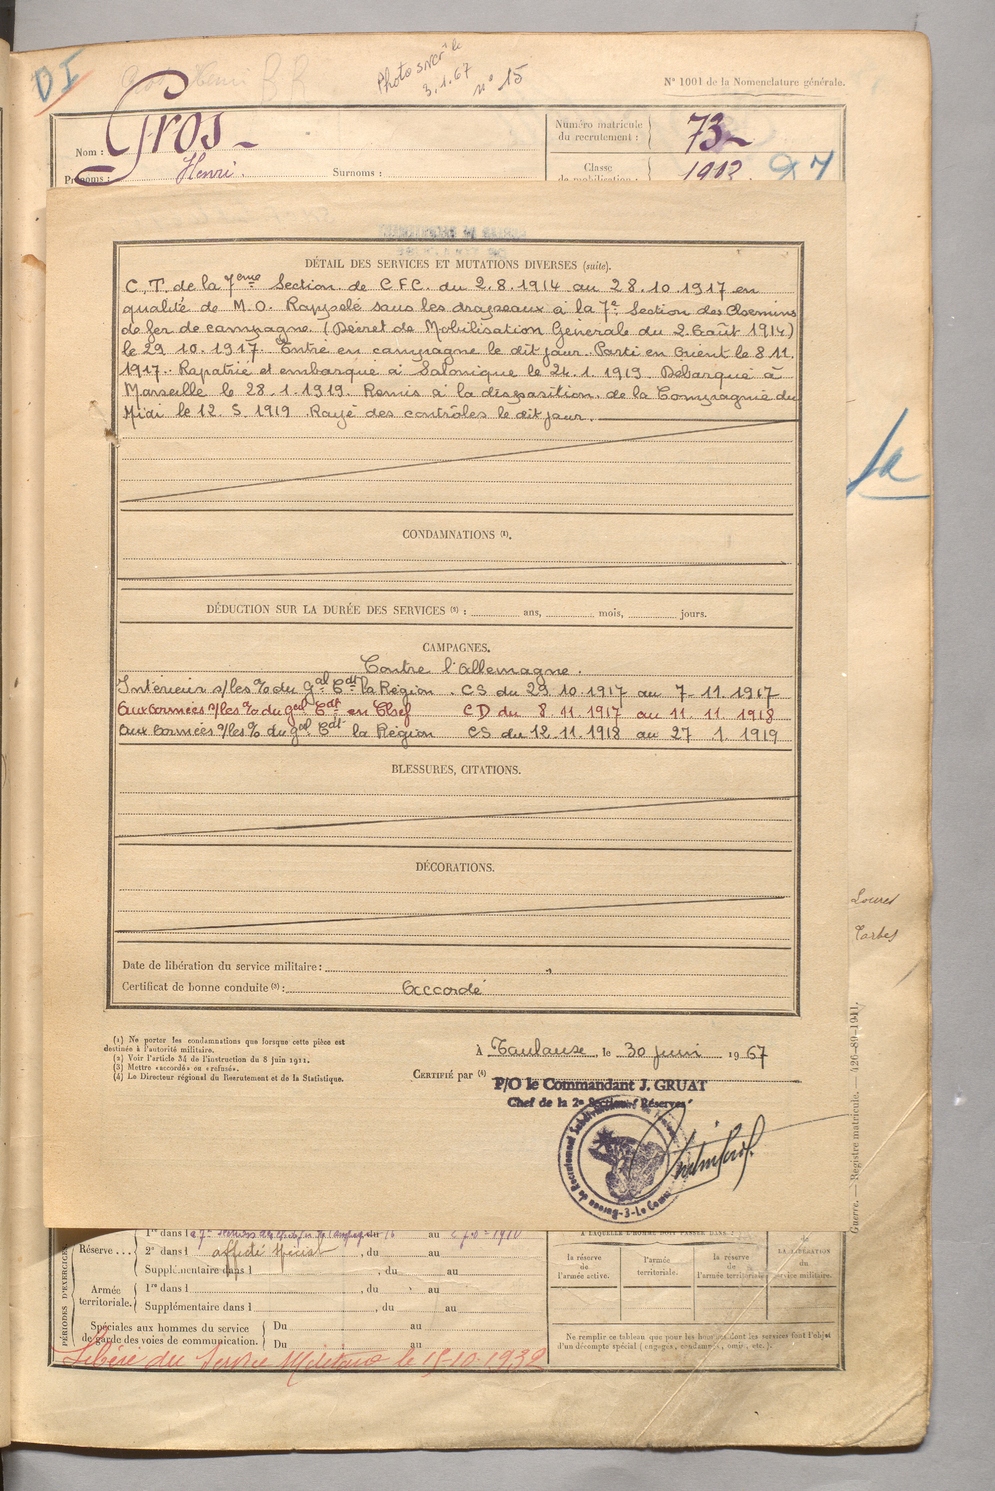 DI
Photo sner le
3.1.67
n° 15
N° 1001 de la Nomenclature générale.
Nom : Gros
Prénoms : Henri. Surnoms :
Numéro matricule du recrutement : 73
Classe de mobilisation : 1912
97
DÉTAIL DES SERVICES ET MUTATIONS DIVERSES (suite).
C.T. de la 7eme Section de C.F.C. du 2.8.1914 au 28.10.1917 en
qualité de M.O. Rappelé sous les drapeaux à la 7e Section des Chemins
de fer de campagne. (Décret de Mobilisation Générale du 2 Août 1914)
le 29 10.1917. Entré en campagne le dit jour. Parti en Orient le 8 11.
1917. Rapatrié et embarqué à Salonique le 24.1.1919. Débarqué à
Marseille le 28.1.1919. Remis à la disposition de la Compagnie du
Midi le 12.5.1919 Rayé des contrôles le dit jour.
CONDAMNATIONS (1).
DÉDUCTION SUR LA DURÉE DES SERVICES (2) : ans, mois, jours.
CAMPAGNES.
Contre l'Allemagne.
Intérieur s/les % du Gal Cdt la Région . CS du 29 10.1917 au 7-11.1917
Aux Armées s/les % du gral Cdt en Chef CD du 8.11.1917 au 11.11.1918
Aux Armées s/les % du gral Cdt la Région CS du 12.11.1918 au 27 1.1919
BLESSURES, CITATIONS.
DÉCORATIONS.
Date de libération du service militaire :
Certificat de bonne conduite (3) : Accordé
(1) Ne porter les condamnations que lorsque cette pièce est
destinée à l'autorité militaire.
(2) Voir l'article 34 de l'instruction du 8 juin 1911.
(3) Mettre «accordé» ou «refusé».
(4) Le Directeur régional du Recrutement et de la Statistique.
À Toulouse, le 30 juin 1967
CERTIFIÉ par (4)
P/O le Commandant J. GRUAT
Chef de la 2e Section "Réserves"
Bureau de Recrutement Subdivision
-3-Le Comm
Loures
Tarbes
Guerre. — Registre matricule. — 426-89-1911.
PÉRIODES D'EXERCICES
Réserve... 1re dans la 7e Section de Ch. de fer de Campagne du 16 au
2e dans l affecté spécial , du au
Supplémentaire dans l , du au
Armée territoriale. 1re dans l , du au
Supplémentaire dans l , du au
Spéciales aux hommes du service de garde des voies de communication. Du au
Du au
Libéré du Service Militaire le 15-10-1932
À LAQUELLE L'HOMME DOIT PASSER DANS :
la réserve de l'armée active.
l'armée territoriale.
la réserve de l'armée territoriale.
de LA LIBÉRATION du service militaire.
Ne remplir ce tableau que pour les hommes dont les services font l'objet
d'un décompte spécial (engagés, condamnés, omis, etc.).